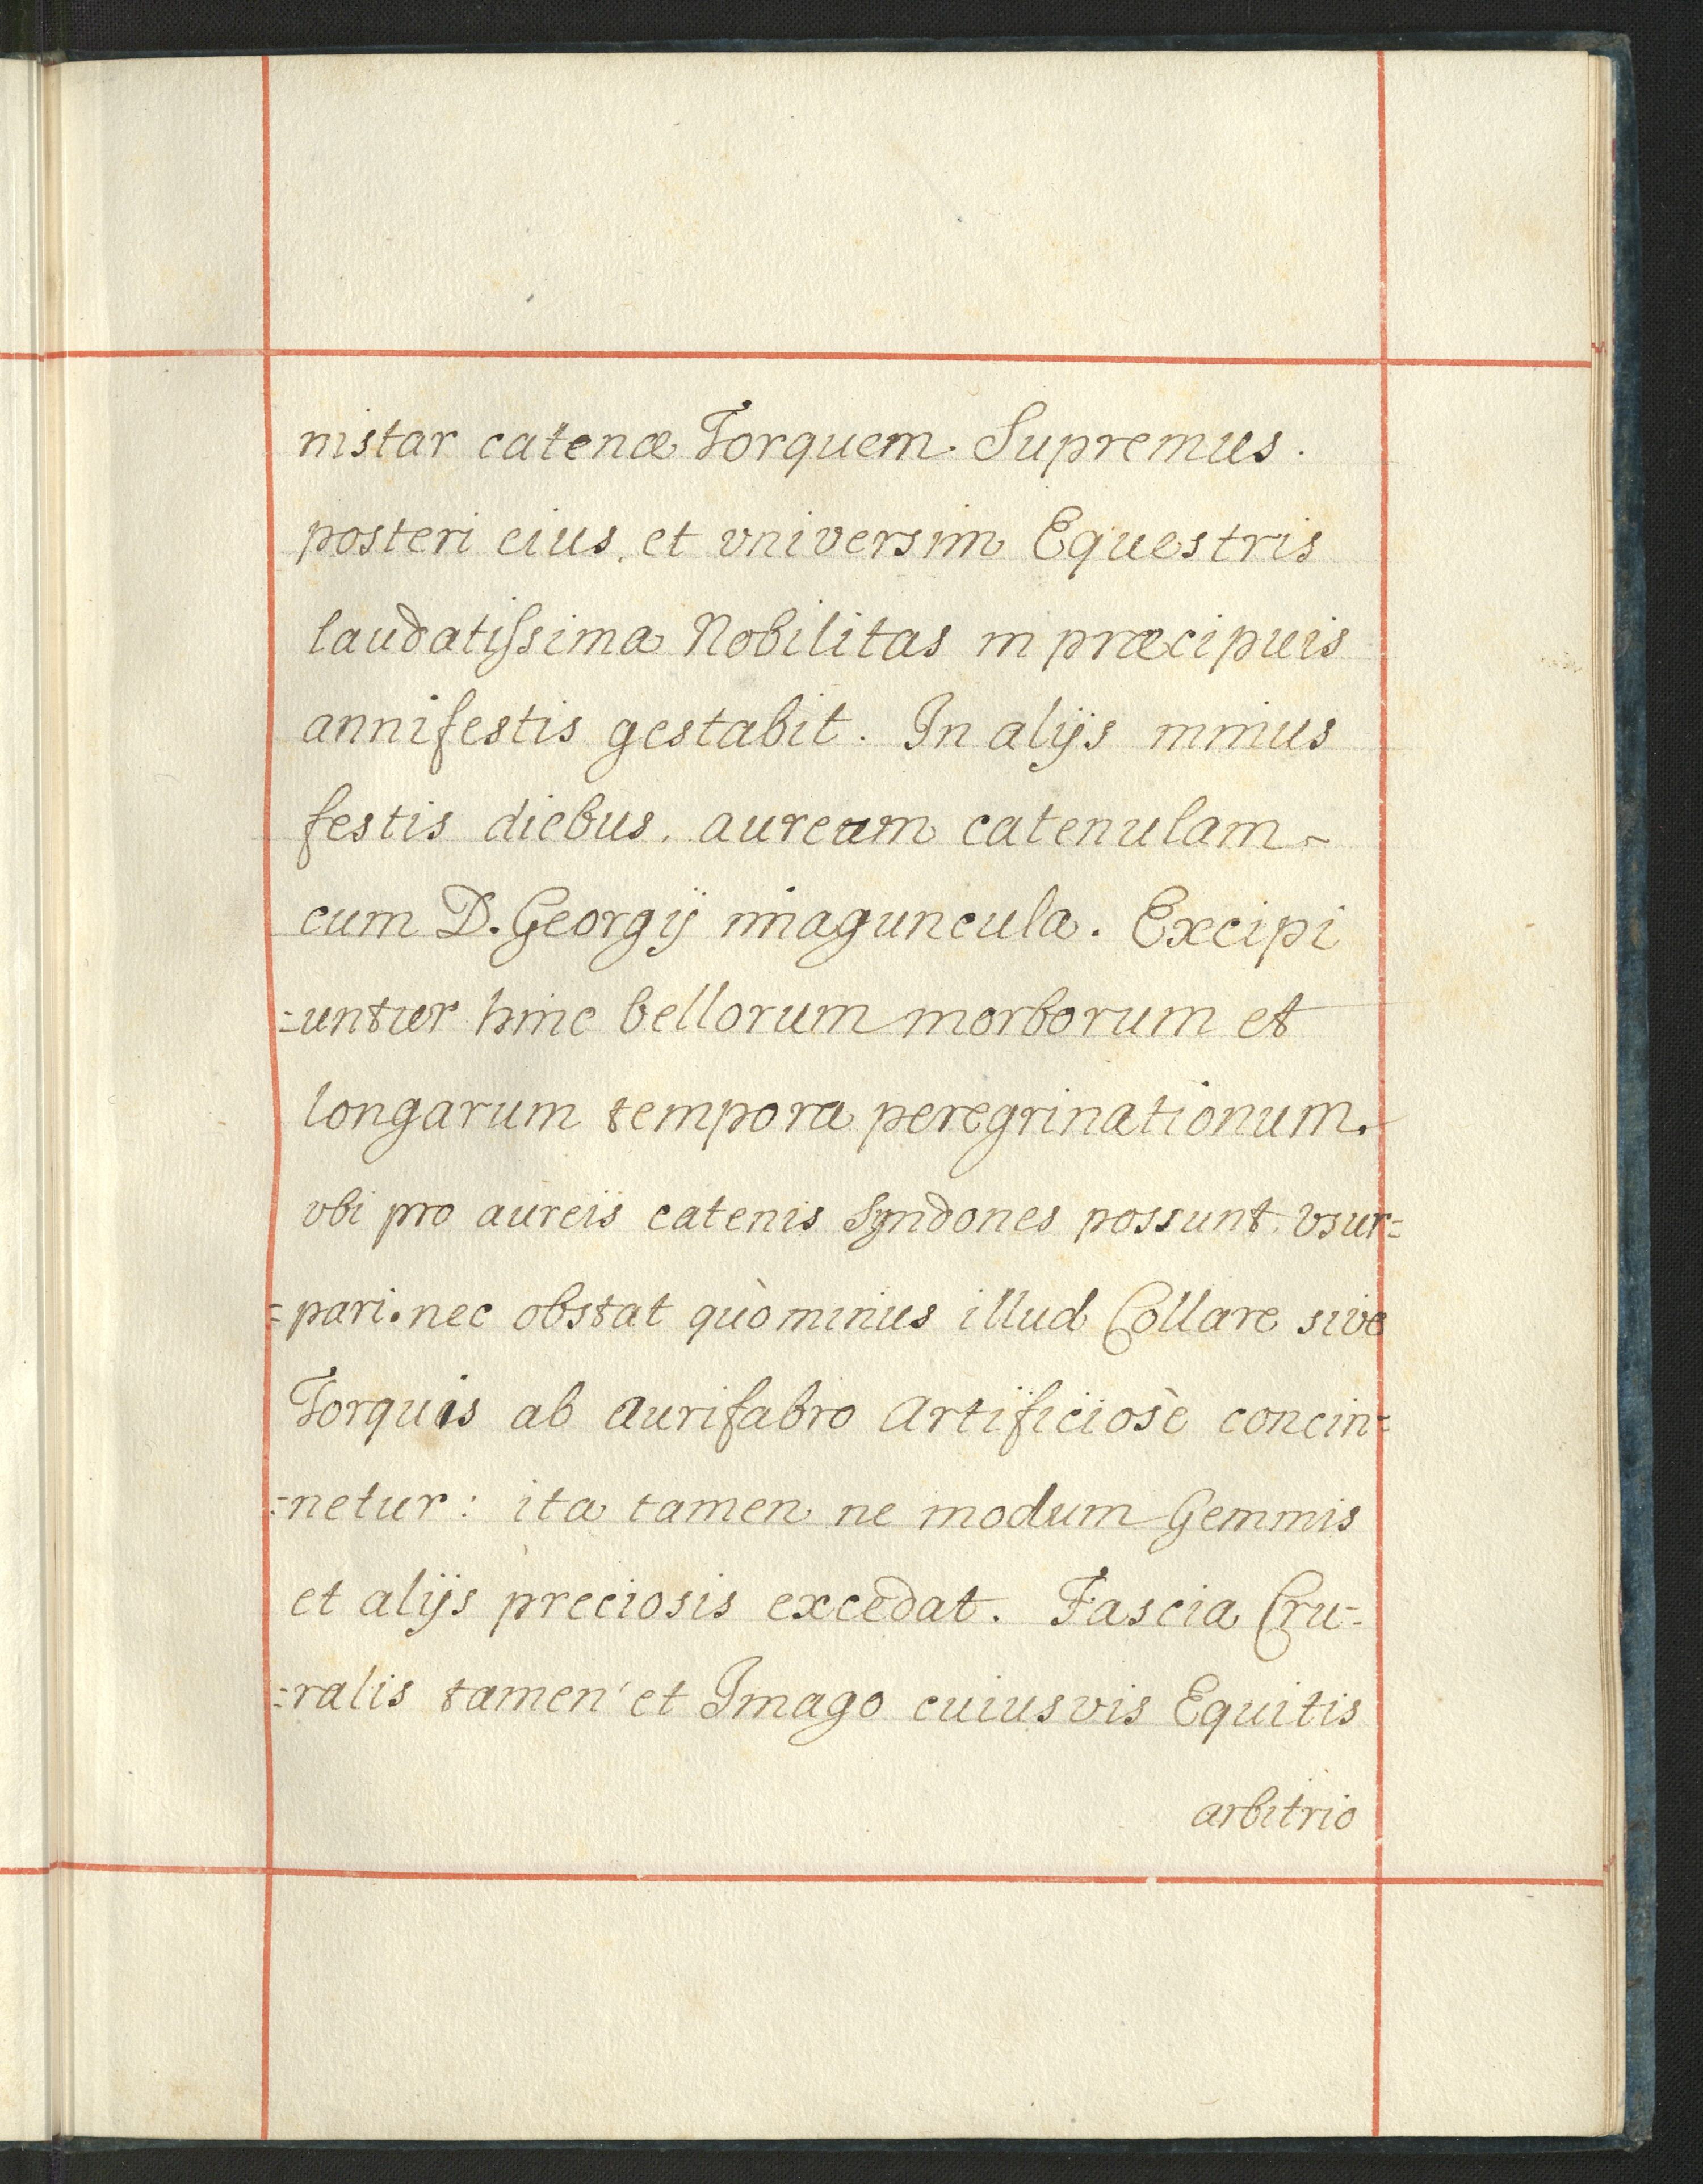 instar catenæ Torquem. Supremus.
posteri eius, et vniversim Equestris
laudatissima Nobilitas in præcipuis
anni festis gestabit. In alijs minus
festis diebus, auream catenulam
cum D. Georgij imaguncula. Excipi
=untur hinc bellorum morborum et
longarum tempora peregrinationum.
vbi pro aureis catenis Syndones possunt vsur=
=pari. nec obstat quò minus illud Collare sive
Torquis ab Aurifabro Artificiosè concin=
=netur: ita tamen ne modum Gemmis
et alijs preciosis excedat. Fascia Cru=
=ralis tamen et Imago cuiusvis Equitis
arbitrio